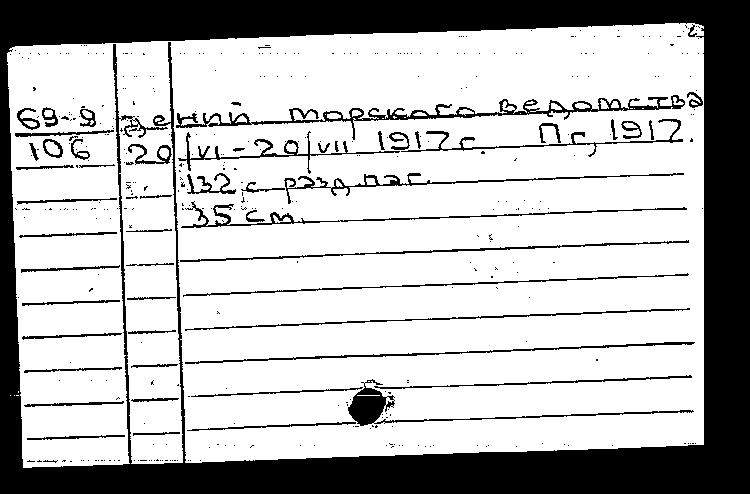 2.
69-9 дений морского ведомства
106 20/VI-20/VII 1917 г. Пг, 1917.
132 с разд. паг.
35 см.